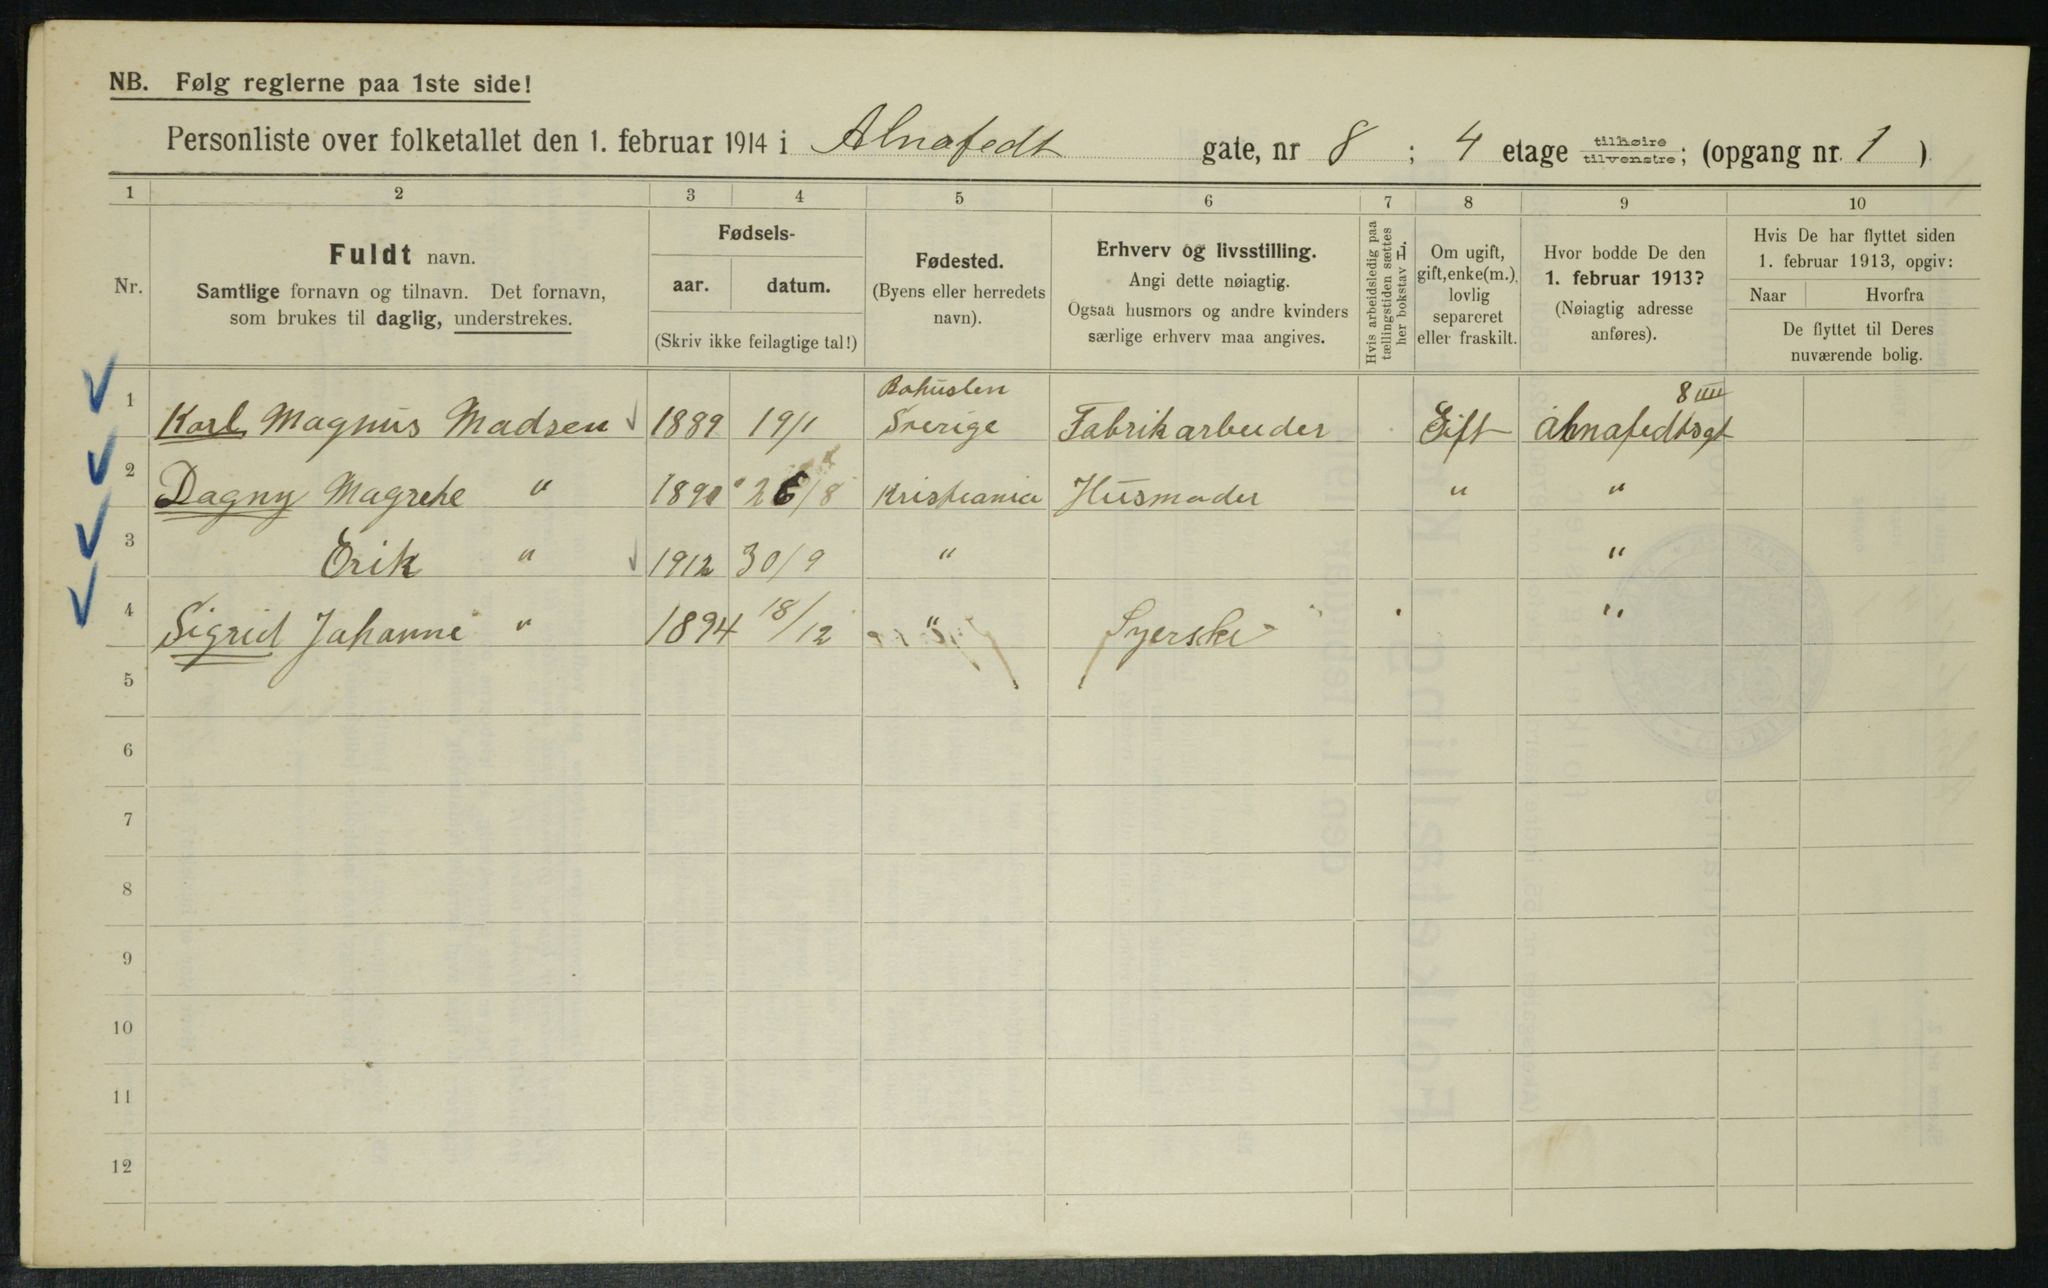 NB. Følg reglerne paa 1ste side!
Personliste over folketallet den 1. februar 1914 i Alnafedt gate, nr 8 ; 4 etage tilhøire tilvenstre; (opgang nr. 1 )
1 2 3 4 5 6 7 8 9 10
Nr.
Fuldt navn.
Samtlige fornavn og tilnavn. Det fornavn,
som brukes til daglig, understrekes.
Fødsels-
aar. datum.
(Skriv ikke feilagtige tal!)
Fødested.
(Byens eller herredets
navn).
Erhverv og livsstilling.
Angi dette nøiagtig.
Ogsaa husmors og andre kvinders
særlige erhverv maa angives.
Hvis arbeidsledig paa
tællingstiden sættes
her bokstav L.
Om ugift,
gift, enke(m.),
lovlig
separeret
eller fraskilt.
Hvor bodde De den
1. februar 1913?
(Nøiagtig adresse
anføres).
Hvis De har flyttet siden
1. februar 1913, opgiv:
Naar Hvorfra
De flyttet til Deres
nuværende bolig.
1 Karl Magnus Madsen 1889 19/1 Bohuslen Sverige Fabrikarbeider Gift Alnafedtsgt 8 IIII
2 Dagny Magrete " 1890 26/8 Kristiania Husmoder " "
3 Erik " 1912 30/9 " "
4 Sigrid Johanne " 1894 18/12 " Syerske "
5
6
7
8
9
10
11
12